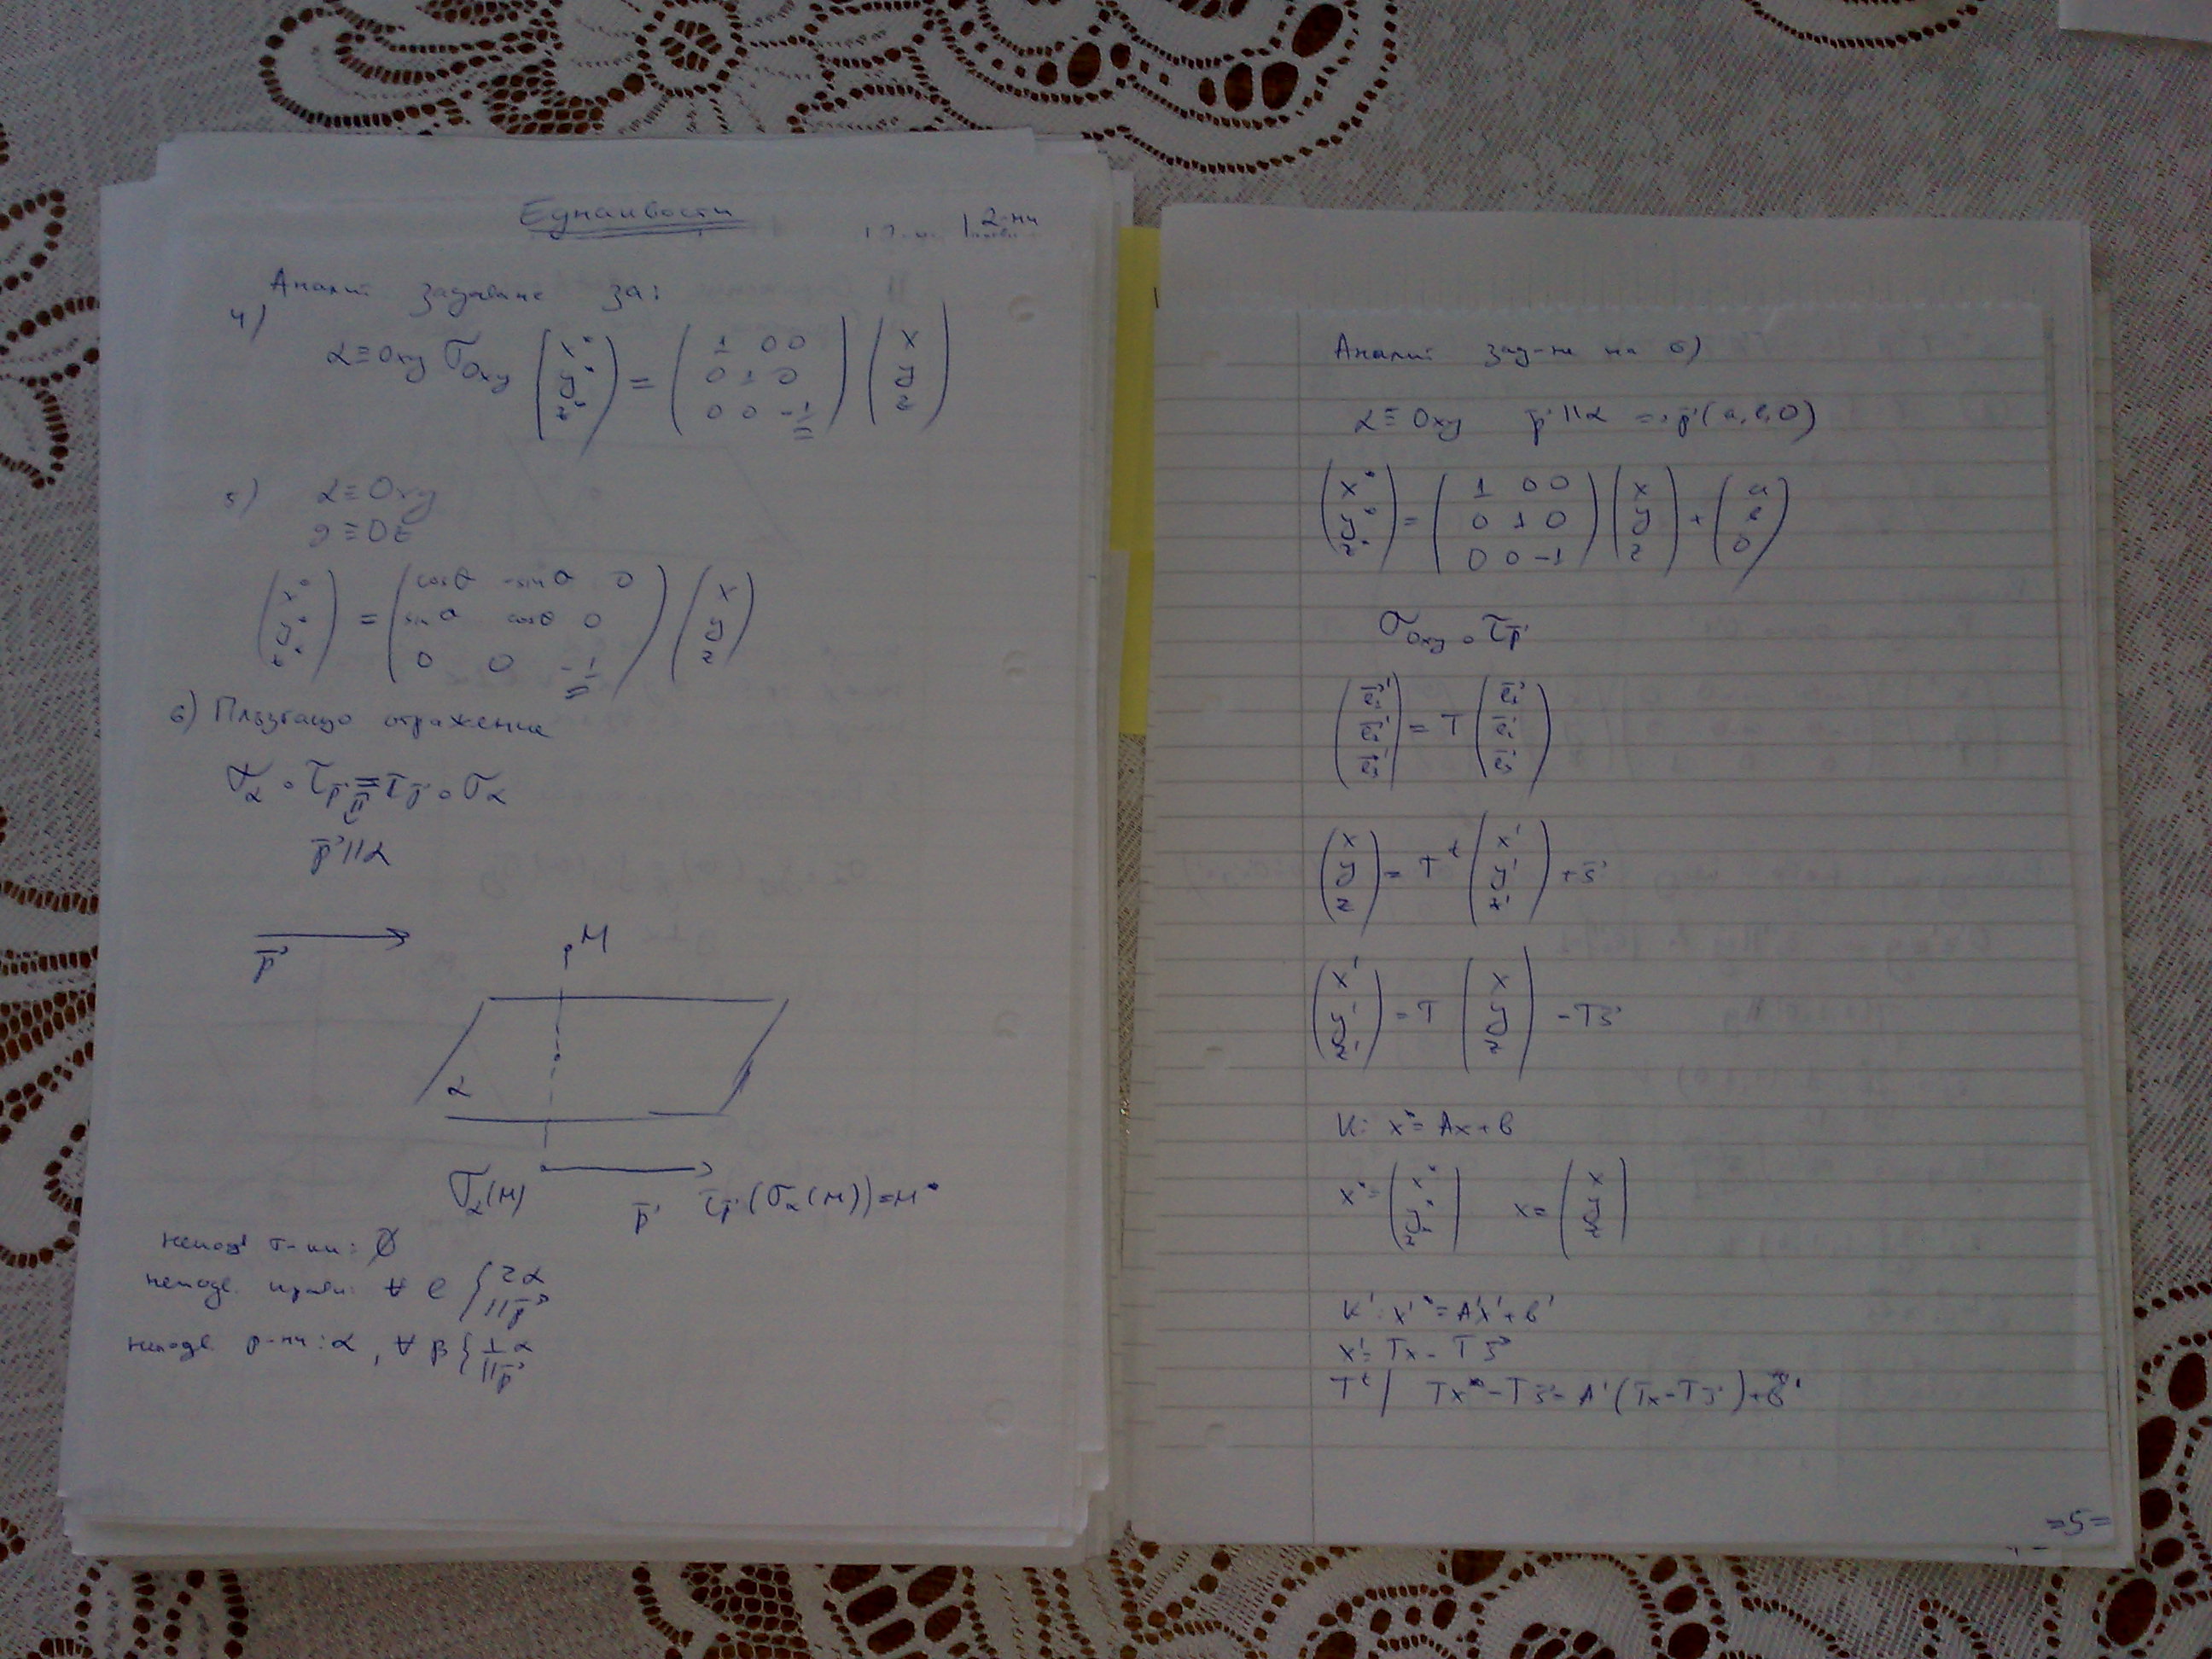 Еднаквости
2-ри
Аналит. задаване за:
4)
α≡Oxy σ_Oxy (x* y* z*) = (1 0 0 / 0 1 0 / 0 0 -1) (x y z)
5) α≡Oxy
g≡Oz
(x* y* z*) = (cosθ -sinθ 0 / sinθ cosθ 0 / 0 0 -1) (x y z)
6) Плъзгащо отражение
σ_α ∘ τ_p⃗ = τ_p⃗ ∘ σ_α
p⃗ || α
p⃗
M
α
σ_α(M) p⃗ τ_p⃗(σ_α(M))=M*
непод т-ки: ∅
неподв. прави: ∀ e { z α || p⃗
неподв. р-ни: α, ∀ β { ⊥α || p⃗
Аналит. зад-не на 6)
α≡Oxy p⃗ || α => p⃗(a, b, 0)
(x* y* z*) = (1 0 0 / 0 1 0 / 0 0 -1) (x y z) + (a b 0)
σ_Oxy ∘ τ_p⃗
(e⃗₁' e⃗₂' e⃗₃') = T (e⃗₁ e⃗₂ e⃗₃)
(x y z) = T^t (x' y' z') + s⃗
(x' y' z') = T (x y z) - Ts⃗
K: x* = Ax+b
x* = (x* y* z*) x = (x y z)
K': x'* = A'x'+b'
x' = Tx - Ts⃗
T^t | Tx* - Ts⃗ = A'(Tx - Ts⃗) + b'
=5=